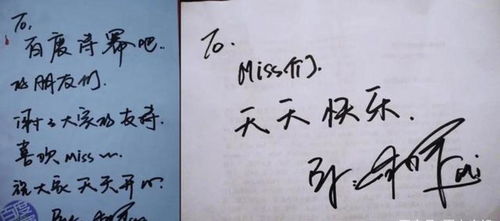 To,
百度诗幂吧.
的朋友们.
谢谢大家的支持.
喜欢Miss
祝大家天天开心.
To.
Miss们.
天天快乐.
By.